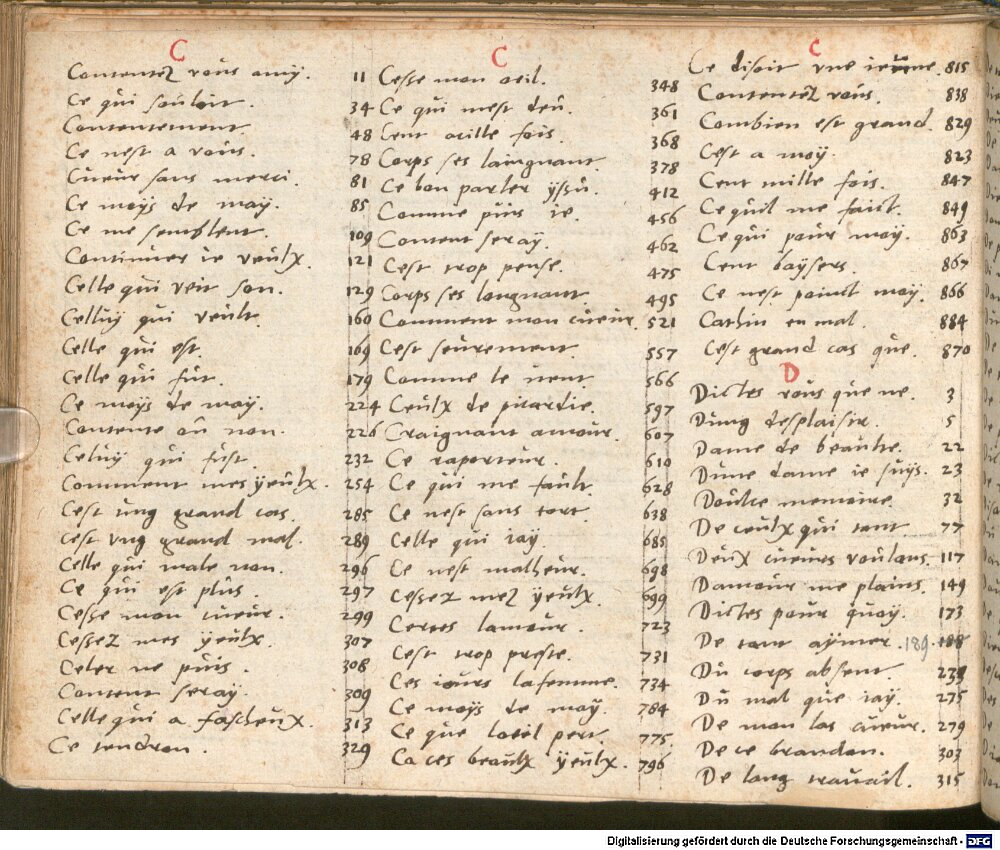 C
Contentez vous amy. 11
Ce qui souloit. 34
Contentement. 48
Ce nest a vous. 78
Cueur sans merci. 81
Ce moys de may. 85
Ce me semblent. 109
Continuer ie veulx. 121
Celle qui veit son. 129
Celluy qui veult. 160
Celle qui est. 169
Celle qui fut. 179
Ce moys de may. 224
Contente ou non. 226
Celuy qui fust. 232
Comment mes yeulx. 254
Cest ung grand cas. 285
Cest vng grand mal. 289
Celle qui male non. 296
Ce qui est plus. 297
Cesse mon cueur. 299
Cessez mes yeulx. 307
Celer ne puis. 308
Content seray. 309
Celle qui a fascheux. 313
Ce tendron. 329
C
Cesse mon oeil. 348
Ce qui mest deu. 361
Cent mille fois. 368
Corps ses laingnant. 378
Ce bon parler yssu. 412
Comme puis ie. 456
Content seray. 462
Cest trop pense. 475
Corps ses longnant. 495
Comment mon cueur. 521
Cest seurement. 557
Comme le vent. 566
Ceulx de picardie. 597
Craignant amour. 607
Ce raporteur. 610
Ce qui me fault. 628
Ce nest sans tort. 638
Celle qui iay. 685
Ce nest malheur. 698
Cessez mez yeulx. 699
Certes lamour. 723
Cest trop preste. 731
Ces iours lafemme. 734
Ce moys de may. 784
Ce que loeil pert. 775
Ca ces beaulx yeulx. 796
C
Ce disoit vne ieune. 815
Contentez vous. 838
Combien est grand. 829
Cest a moy. 823
Cent mille fois. 847
Ce quil me faict. 849
Ce qui pour moy. 863
Cent baysers. 867
Ce nest poinct moy. 866
Cathin en mal. 884
Cest grand cas que. 870
D
Dictes vous que ne. 3
Dung desplaisir. 5
Dame de beaulte. 22
Dune dame ie suys. 23
Doulce memoire. 32
De ceulx qui tant. 77
Deux cueurs voulans. 117
Damour me plains. 149
Dictes pour quoy. 173
De tant aymer. 189. 188
Du corps absent. 239
Du mal que iay. 275
De mon las cueur. 279
De ce brandon. 303
De long trauail. 315
Digitalisierung gefördert durch die Deutsche Forschungsgemeinschaft - DFG